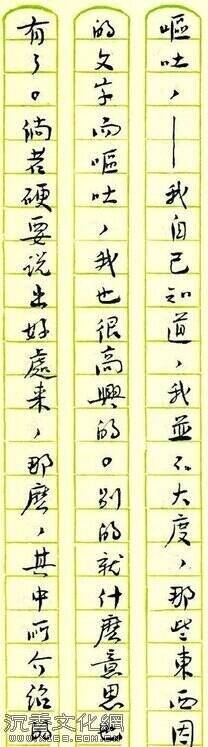 嘔吐，——我自己知道，我並不大度，那些東西因
的文字而嘔吐，我也很高興的。別的就什麼意思也
有了。倘若硬要說出好處来，那麽，其中所介紹的
沉香文化網